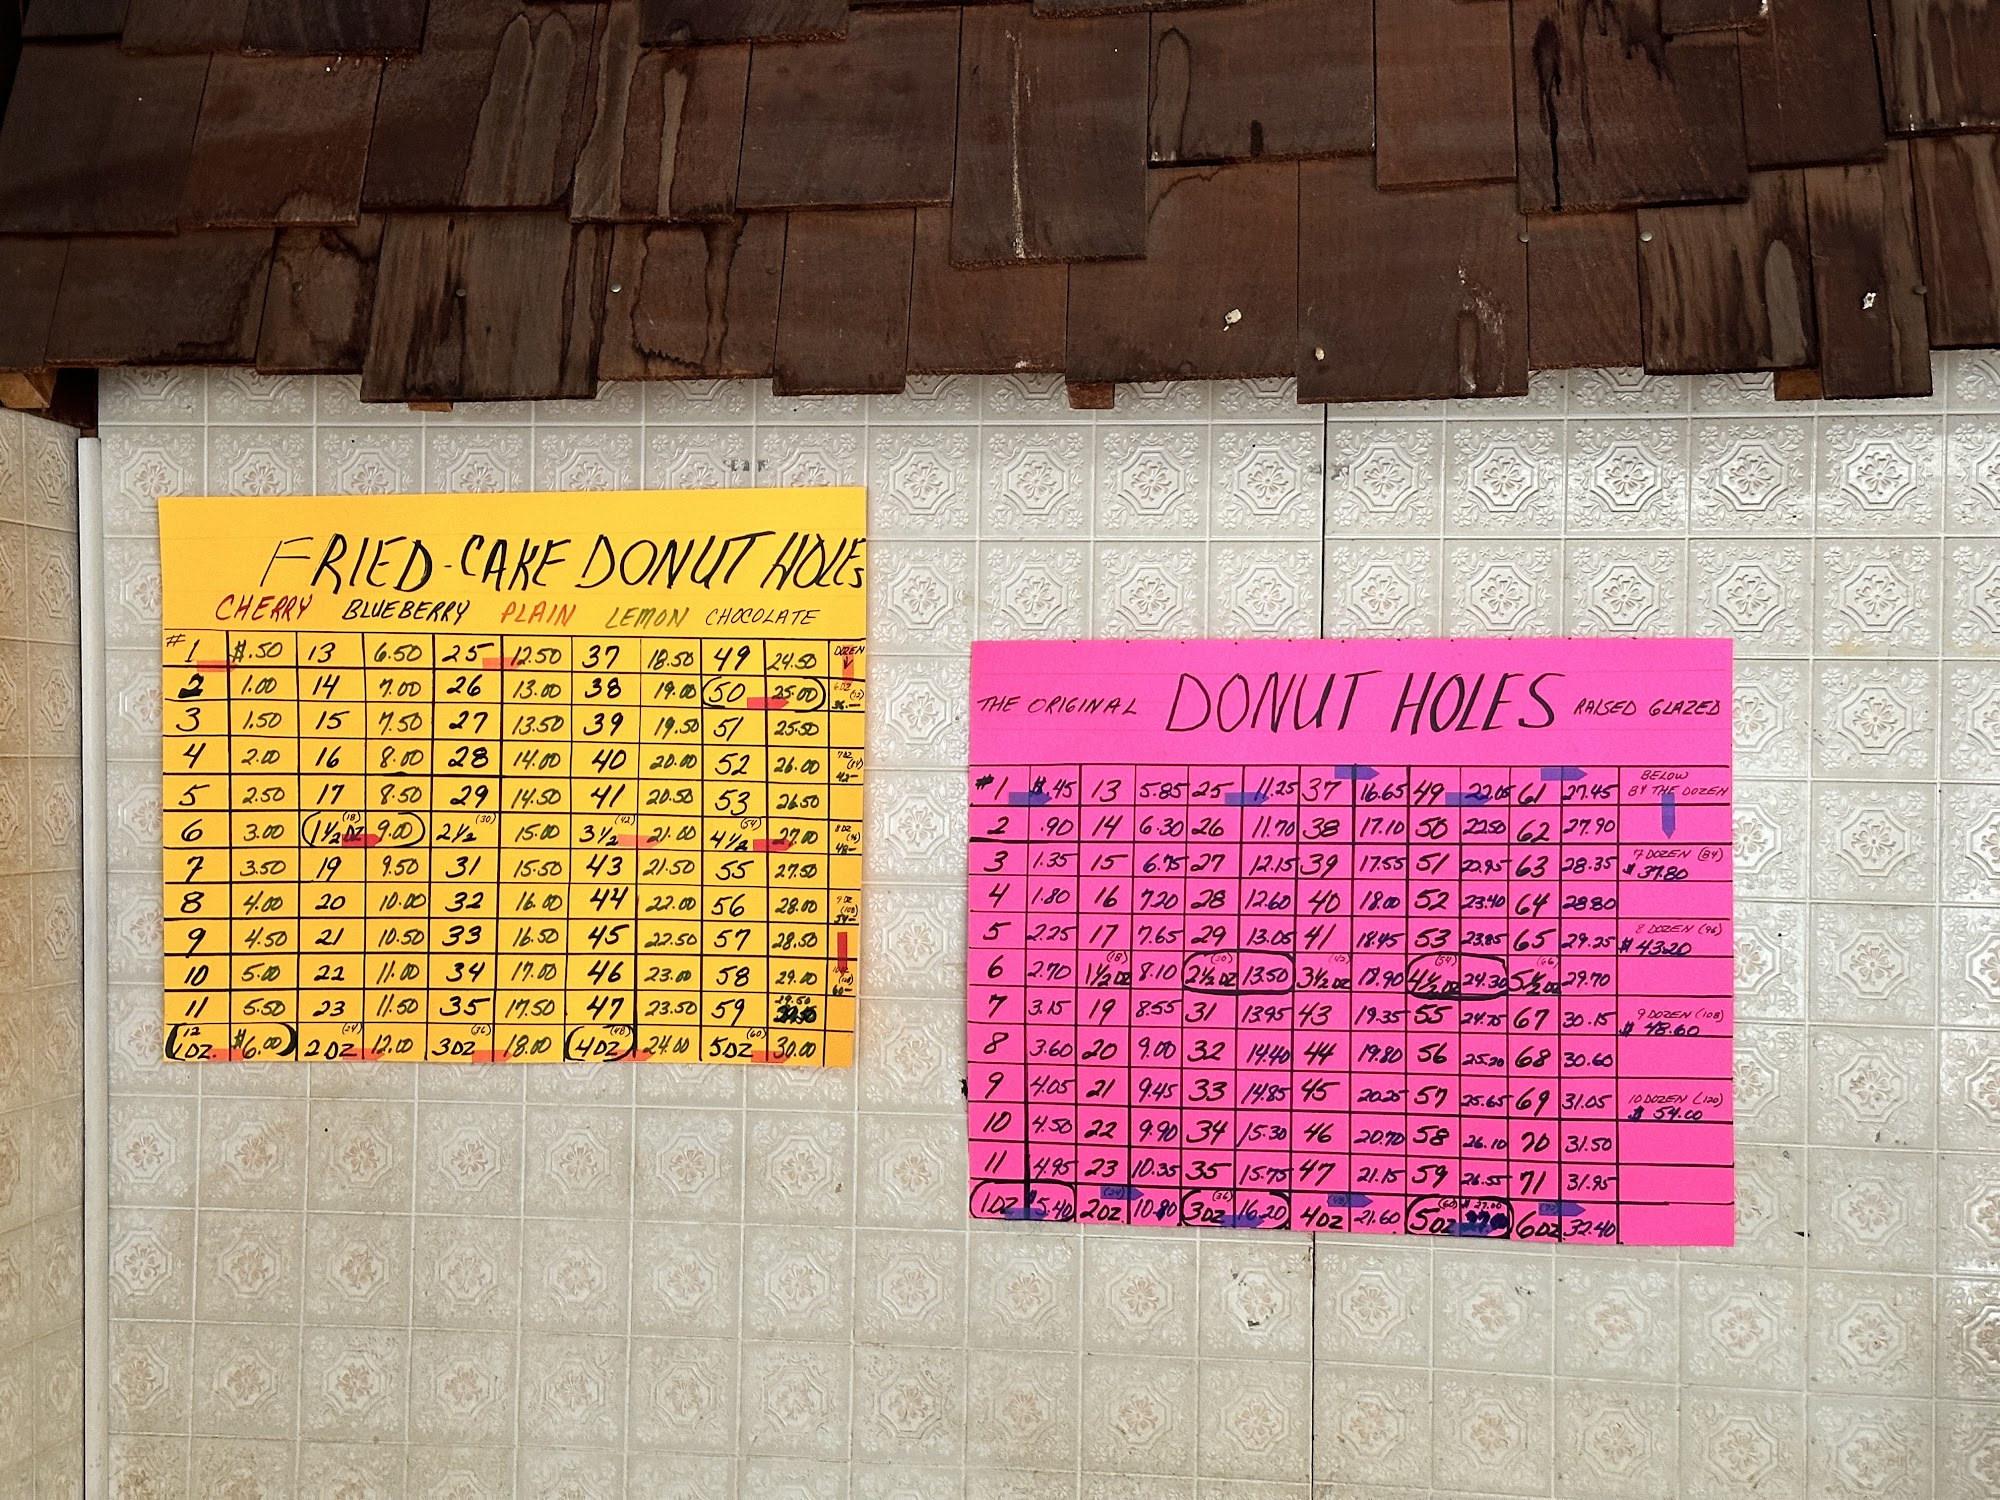 FRIED-CAKE DONUT HOLES
CHERRY BLUEBERRY PLAIN LEMON CHOCOLATE
#1 $.50 13 6.50 25 12.50 37 18.50 49 24.50 DOZEN
2 1.00 14 7.00 26 13.00 38 19.00 50 25.00 6DZ (72) 36.—
3 1.50 15 7.50 27 13.50 39 19.50 51 25.50
4 2.00 16 8.00 28 14.00 40 20.00 52 26.00 7DZ (84) 42—
5 2.50 17 8.50 29 14.50 41 20.50 53 26.50
6 3.00 1½ DZ (18) 9.00 2½ (30) 15.00 3½ (42) 21.00 4½ (54) 27.00 8DZ (96) 48—
7 3.50 19 9.50 31 15.50 43 21.50 55 27.50
8 4.00 20 10.00 32 16.00 44 22.00 56 28.00 9DZ (108) 54—
9 4.50 21 10.50 33 16.50 45 22.50 57 28.50
10 5.00 22 11.00 34 17.00 46 23.00 58 29.00 (120) 60—
11 5.50 23 11.50 35 17.50 47 23.50 59 29.50
12 1DZ. $6.00 2DZ (24) 12.00 3DZ (36) 18.00 4DZ (48) 24.00 5DZ (60) 30.00
THE ORIGINAL DONUT HOLES RAISED GLAZED
#1 $.45 13 5.85 25 11.25 37 16.65 49 22.05 61 27.45 BELOW BY THE DOZEN
2 .90 14 6.30 26 11.70 38 17.10 50 22.50 62 27.90
3 1.35 15 6.75 27 12.15 39 17.55 51 22.95 63 28.35 7 DOZEN (84) $37.80
4 1.80 16 7.20 28 12.60 40 18.00 52 23.40 64 28.80
5 2.25 17 7.65 29 13.05 41 18.45 53 23.85 65 29.25 8 DOZEN (96) $43.20
6 2.70 1½ DZ (18) 8.10 2½ DZ (30) 13.50 3½ DZ (42) 18.90 4½ DZ (54) 24.30 5½ DZ (66) 29.70
7 3.15 19 8.55 31 13.95 43 19.35 55 24.75 67 30.15 9 DOZEN (108) $48.60
8 3.60 20 9.00 32 14.40 44 19.80 56 25.20 68 30.60
9 4.05 21 9.45 33 14.85 45 20.25 57 25.65 69 31.05 10 DOZEN (120) $54.00
10 4.50 22 9.90 34 15.30 46 20.70 58 26.10 70 31.50
11 4.95 23 10.35 35 15.75 47 21.15 59 26.55 71 31.95
1DZ $5.40 2DZ. (24) 10.80 3DZ (36) 16.20 4DZ (48) 21.60 5DZ (60) $27.00 6DZ (72) 32.40